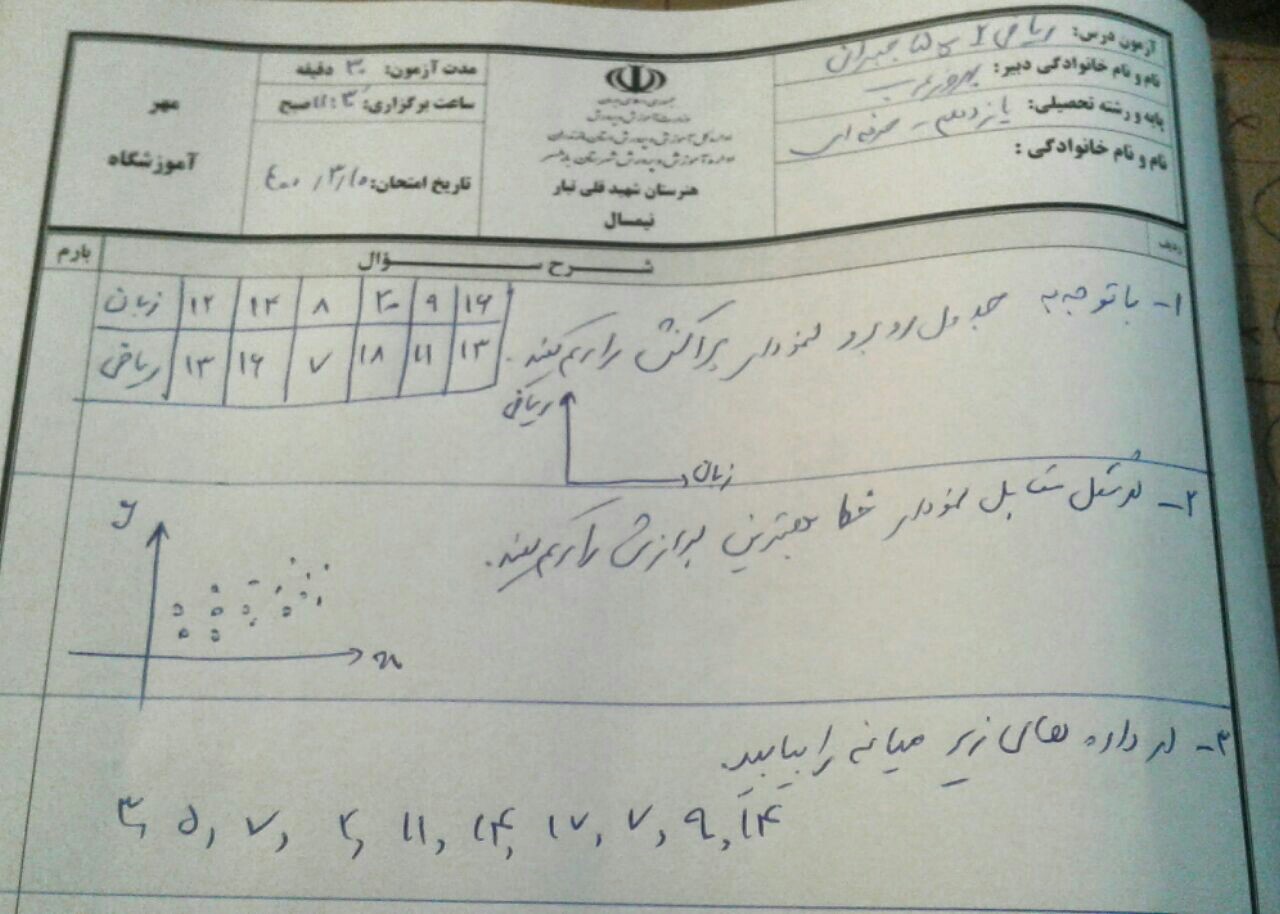 آزمون درس: ریاضی ۲
نام و نام خانوادگی دبیر:
پایه و رشته تحصیلی: یازدهم - حرفه ای
نام و نام خانوادگی :
جمهوری اسلامی ایران
وزارت آموزش و پرورش
اداره کل آموزش و پرورش استان مازندران
اداره آموزش و پرورش شهرستان بابلسر
هنرستان شهید قلی تبار
نیمسال
مدت آزمون: ۳۰ دقیقه
ساعت برگزاری: ۱۱:۳۰ صبح
تاریخ امتحان: ۴۰۰/۳/۱۰
مهر
آموزشگاه
ردیف
شرح سؤال
بارم
۱- با توجه به جدول روبرو نمودار پراکنش را رسم کنید.
زبان ۱۲ ۱۴ ۸ ۲۰ ۹ ۱۶
ریاضی ۱۳ ۱۶ ۷ ۱۸ ۱۱ ۱۳
ریاضی
زبان
۲- در شکل مقابل نمودار خط بهترین برازش را رسم کنید.
y
x
۳- در داده های زیر میانه را بیابید.
۳, ۵, ۷, ۲, ۱۱, ۱۴, ۱۷, ۷, ۹, ۱۴